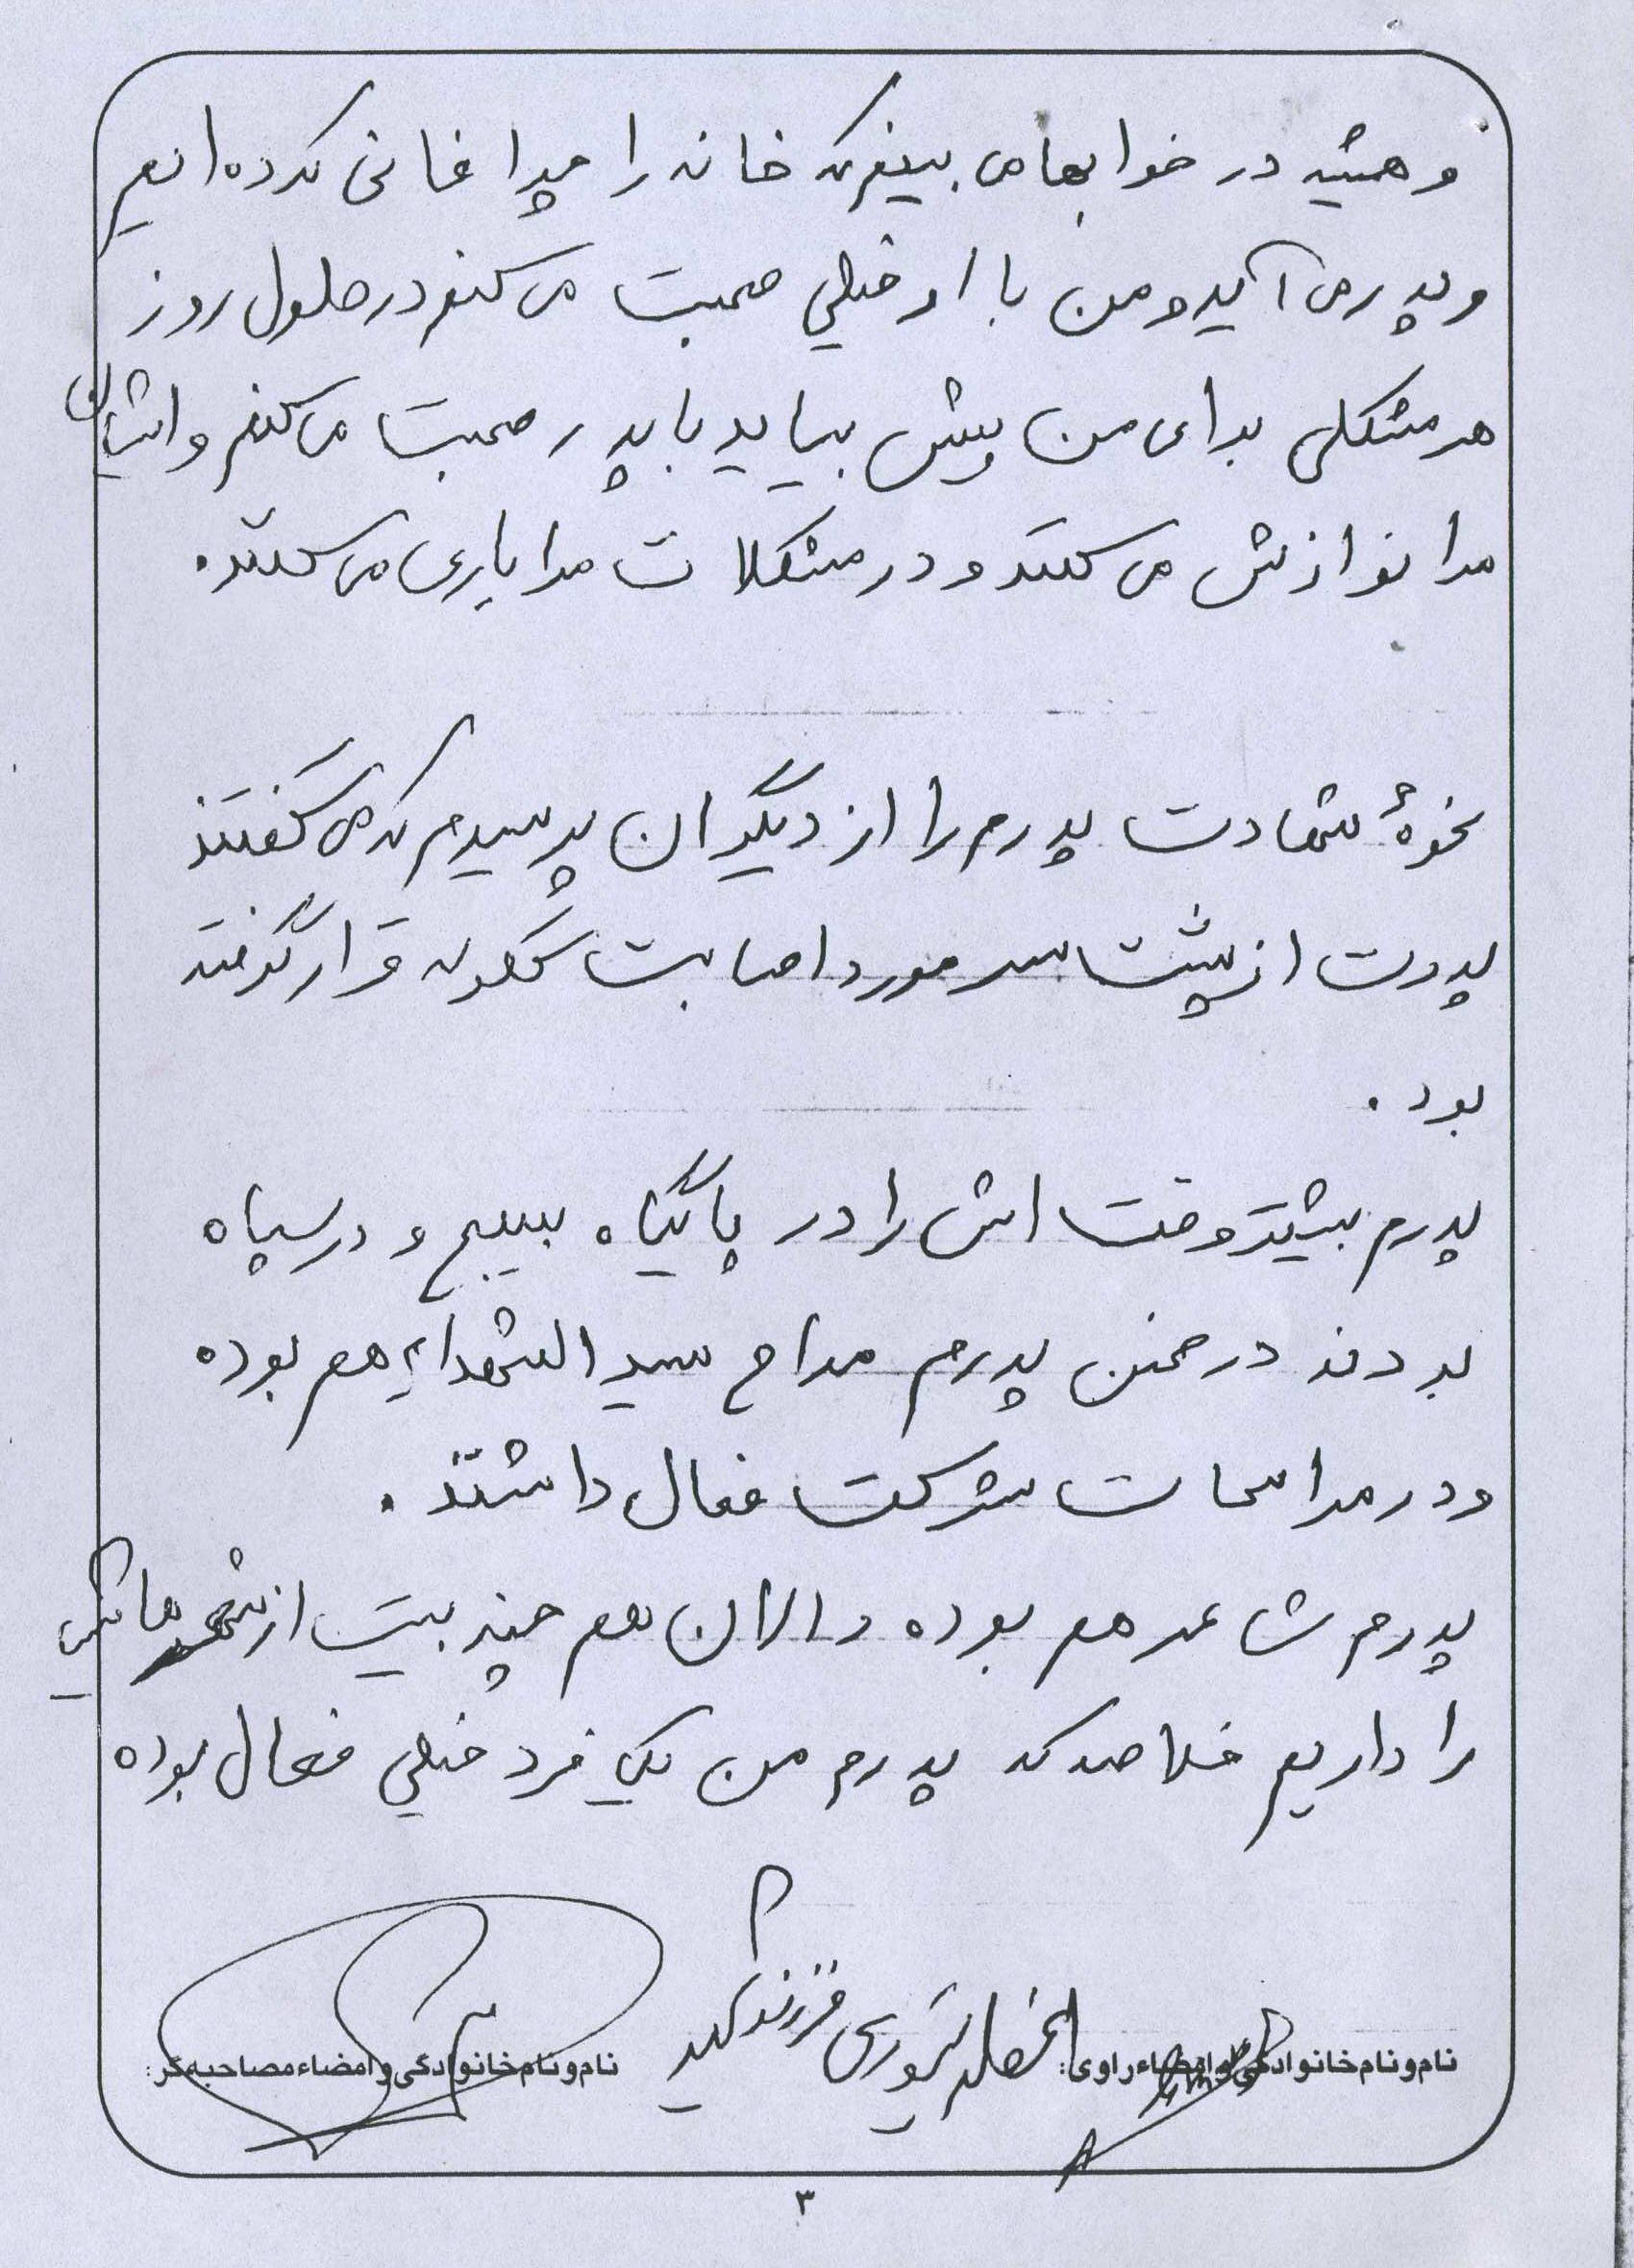 و همیشه در خوابها می بینم که خانه را چراغانی کرده ایم
و پدر می آید و من با او خیلی صحبت می کنم در طول روز
هر مشکلی برای من پیش بیاید با پدر صحبت می کنم و ایشان
مرا نوازش می کنند و در مشکلات مرا یاری می کنند.
نحوهٔ شهادت پدرم را از دیگران پرسیدم که می گفتند
پدرت از پشت سر مورد اصابت گلوله قرار گرفته
بود.
پدرم بیشتر وقت اش را در پایگاه بسیج و در سپاه
بودند در ضمن پدرم مداح سید الشهداء هم بوده
و در مراسمات شرکت فعال داشتند.
پدرم شاعر هم بوده و الان هم چند بیت از شعرهایش
را داریم خلاصه که پدرم من یک فرد خیلی فعال بوده
نام و نام خانوادگی و امضاء راوی: تیموری فرزند شهید
نام و نام خانوادگی و امضاء مصاحبه گر:
۳